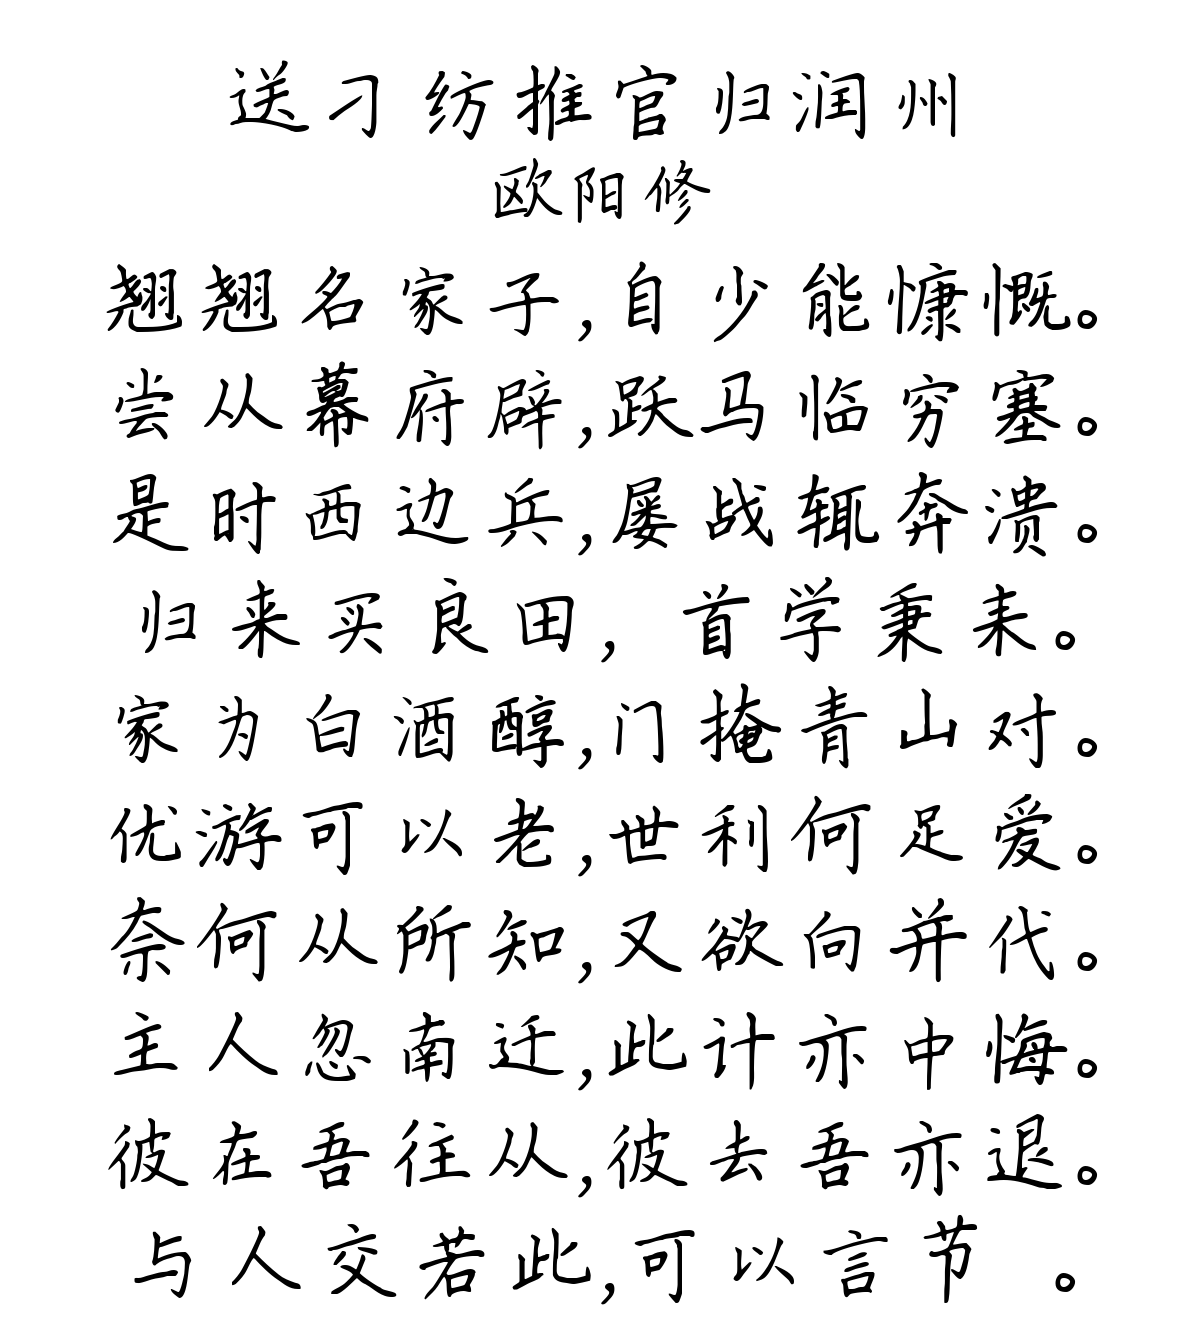 送刁纺推官归润州
欧阳修
翘翘名家子,自少能慷慨。
尝从幕府辟,跃马临穷塞。
是时西边兵,屡战辄奔溃。
归来买良田,首学秉耒。
家为白酒醇,门掩青山对。
优游可以老,世利何足爱。
奈何从所知,又欲向并代。
主人忽南迁,此计亦中悔。
彼在吾往从,彼去吾亦退。
与人交若此,可以言节 。